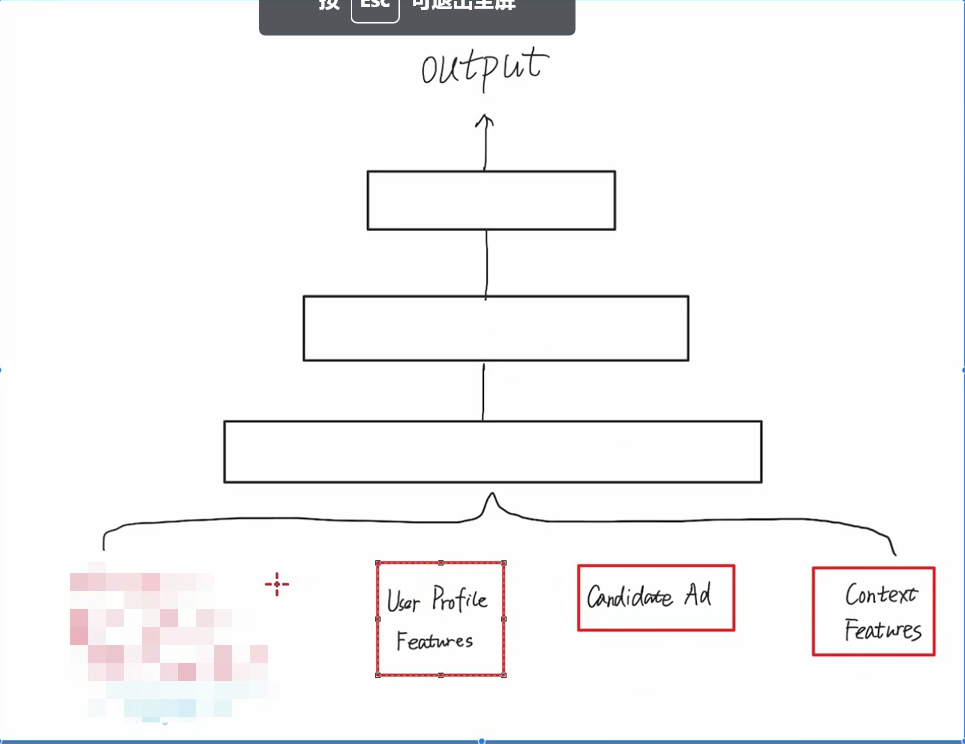 按 Esc 可退出全屏
output
User Profile
Features
Candidate Ad
Context
Features